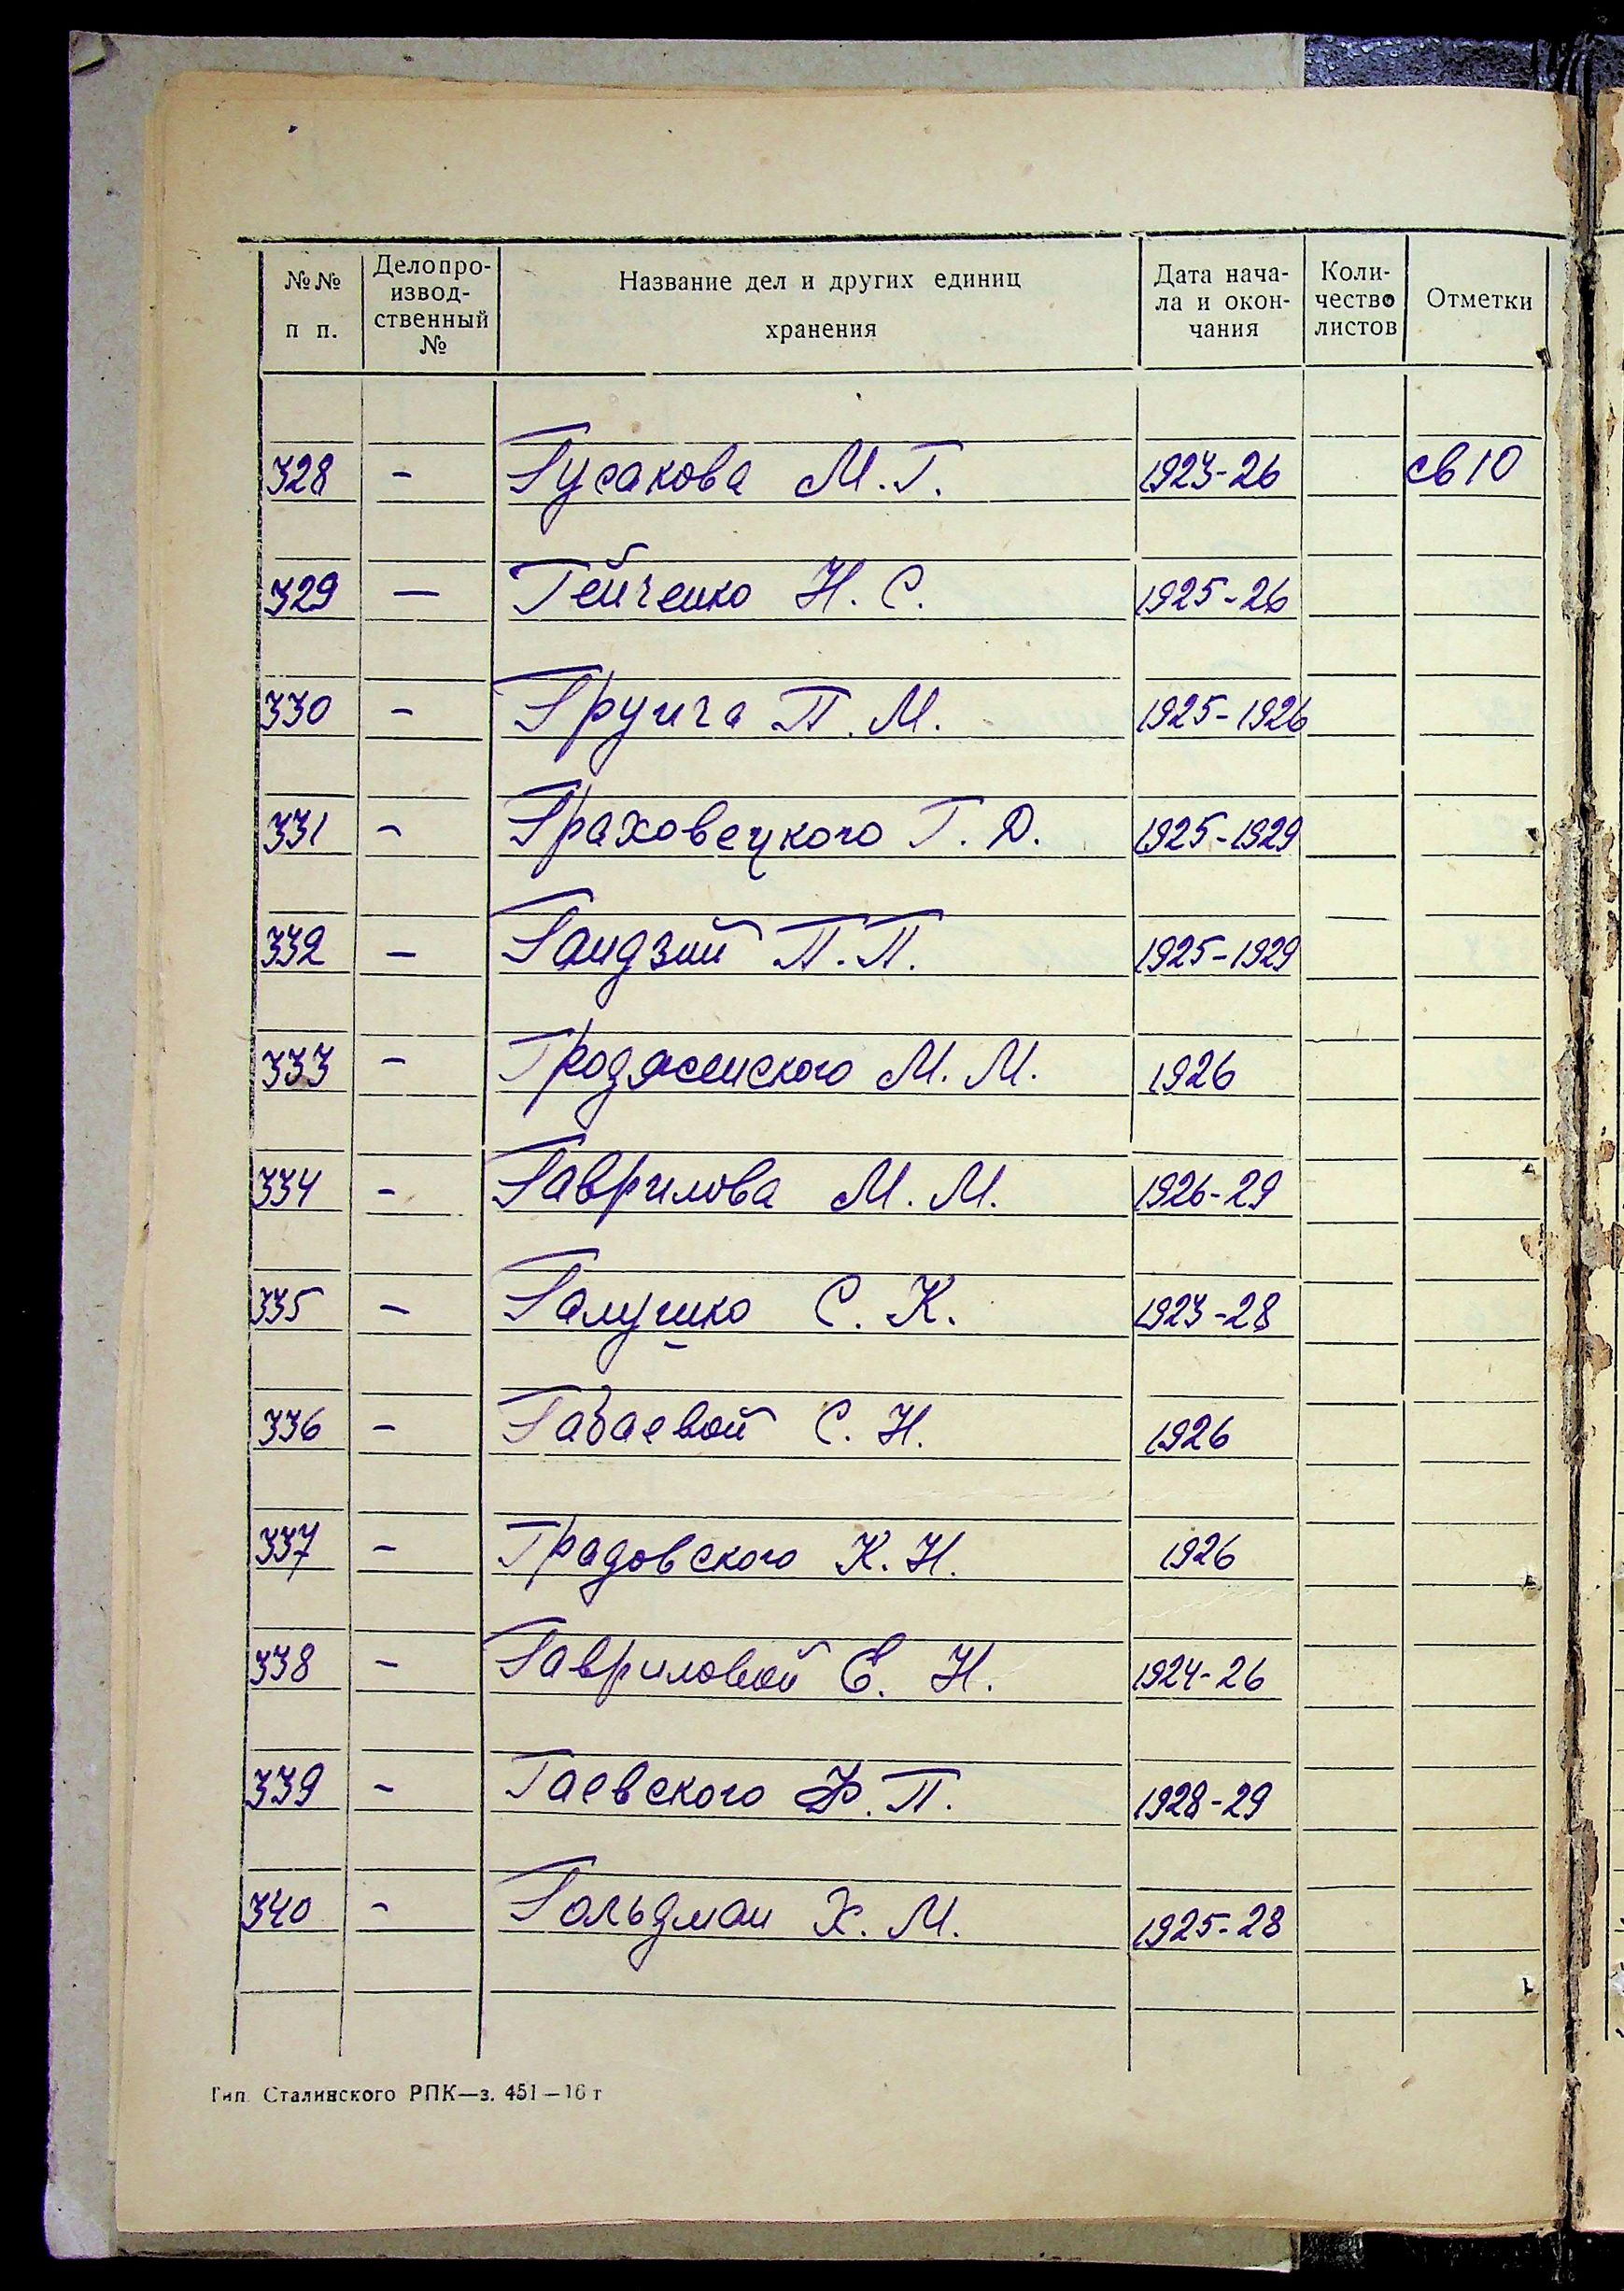 №№ п п. Делопро-извод-ственный № Название дел и других единиц хранения Дата нача-ла и окон-чания Коли-чество листов Отметки
328 - Гусакова М.Г. 1923-26 св 10
329 — Гейченко Н.С. 1925-26
330 - П.М. 1925-1926
331 - Граховецкого Г.Д. 1925-1929
332 - Гандзий П.П. 1925-1929
333 - Гродженского М.М. 1926
334 - Гаврилова М.М. 1926-29
335 - Галушко С.К. 1923-28
336 - Габаевой С.Н. 1926
337 - Градовского К.Н. 1926
338 - Гавриловой Е.Н. 1924-26
339 - Гаевского Ф.П. 1928-29
340 - Гольдман Х.М. 1925-28
Тип. Сталинского РПК—з. 451—16 т